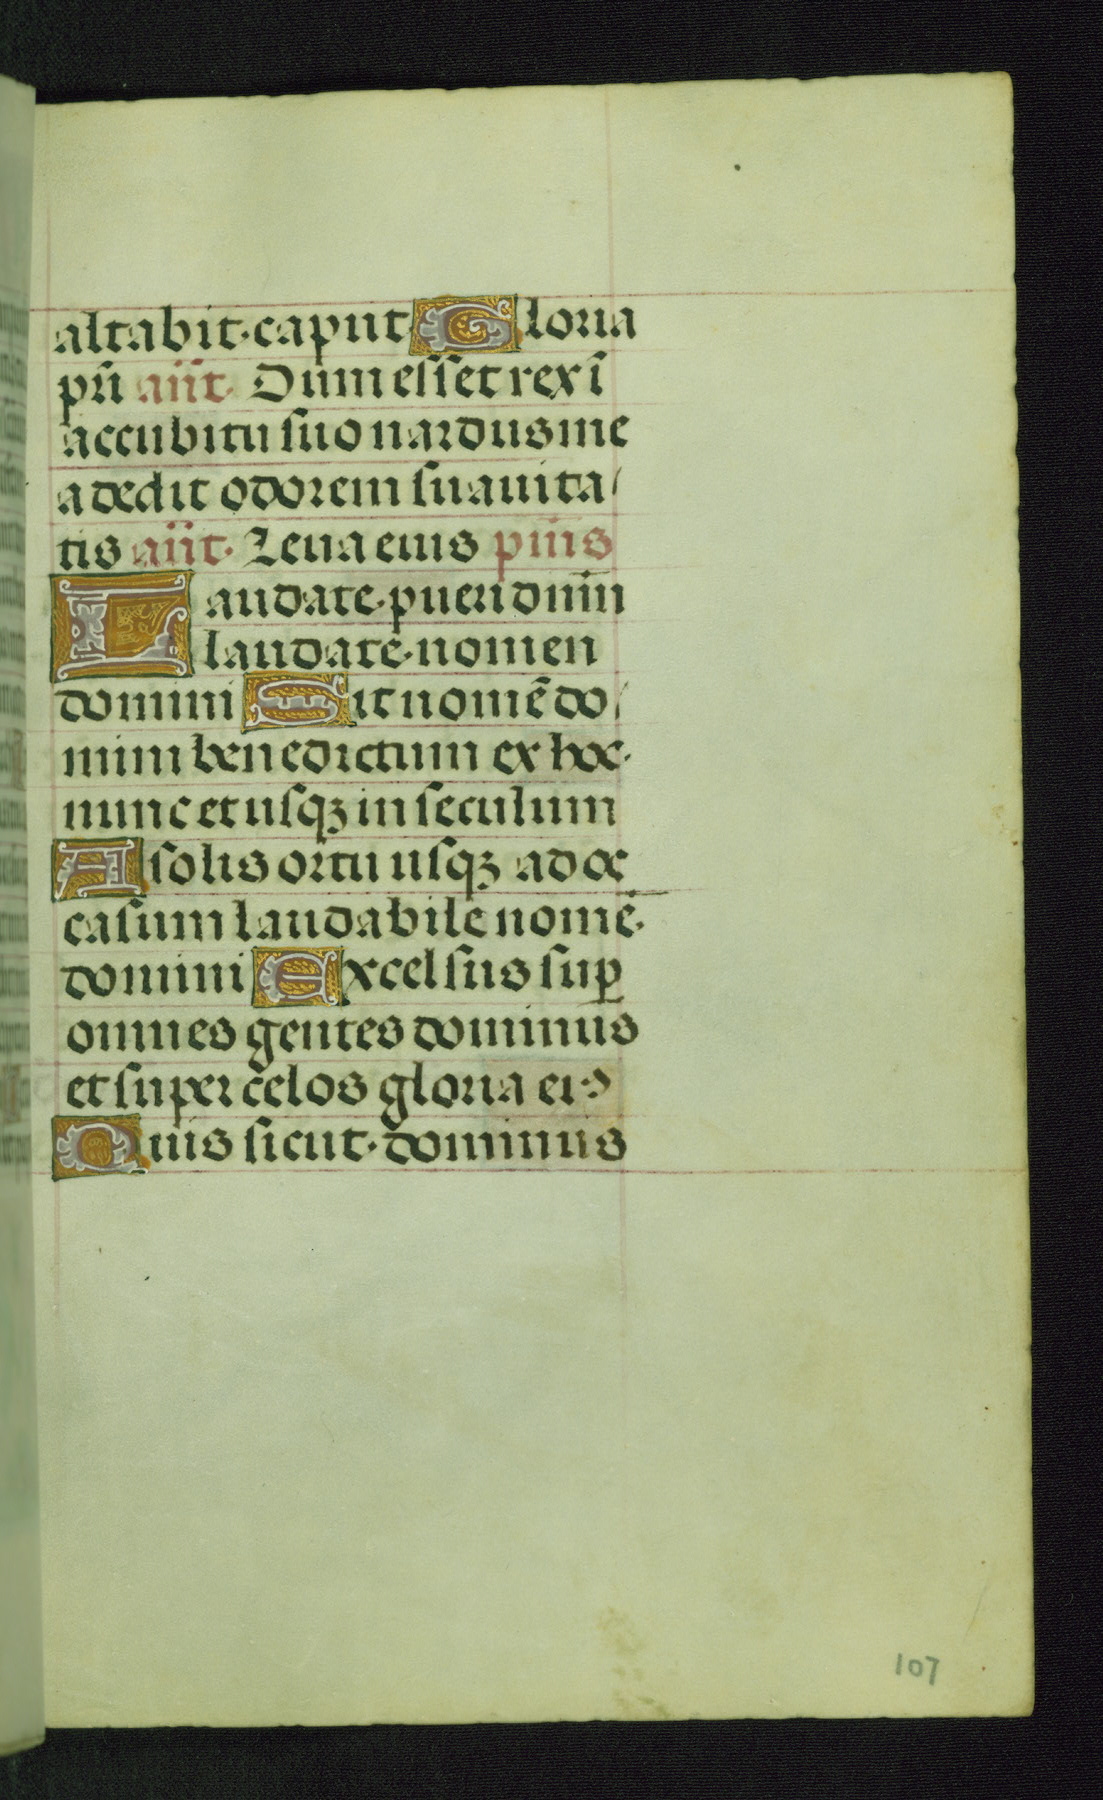 altabit caput Gloria
pr̄i añt. Dum esset rex ī
accubitu suo nardus me
a dedit odorem suauita
tis añt. Leua eius pm̄s
Laudate pueri dn̄m
laudate nomen
domini Sit nomē do
mini benedictum ex hoc
nunc et usqꝫ in seculum
A solis ortu usqꝫ ad oc
casum laudabile nomē
domini Excelsus suꝑ
omnes gentes dominus
et super celos gloria eiꝰ
Quis sicut dominus
107